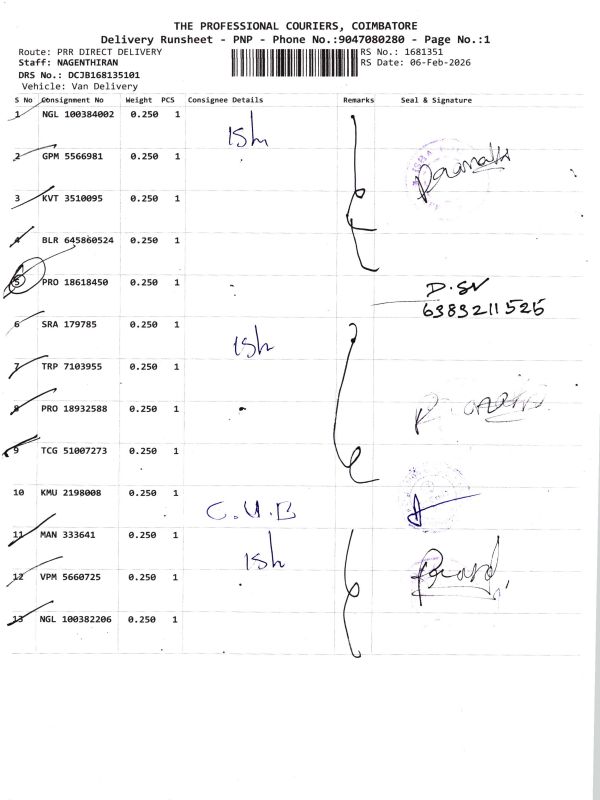 THE PROFESSIONAL COURIERS, COIMBATORE
Delivery Runsheet - PNP - Phone No.:9047080280 - Page No.:1
Route: PRR DIRECT DELIVERY RS No.: 1681351
Staff: NAGENTHIRAN RS Date: 06-Feb-2026
DRS No.: DCJB168135101
Vehicle: Van Delivery
S No Consignment No Weight PCS Consignee Details Remarks Seal & Signature
1 NGL 100384002 0.250 1
Ish
2 GPM 5566981 0.250 1
3 KVT 3510095 0.250 1
4 BLR 645860524 0.250 1
5 PRO 18618450 0.250 1 D.SV
6383211525
6 SRA 179785 0.250 1
Ish
7 TRP 7103955 0.250 1
8 PRO 18932588 0.250 1
9 TCG 51007273 0.250 1
10 KMU 2198008 0.250 1 C.U.B
11 MAN 333641 0.250 1
Ish
12 VPM 5660725 0.250 1
13 NGL 100382206 0.250 1